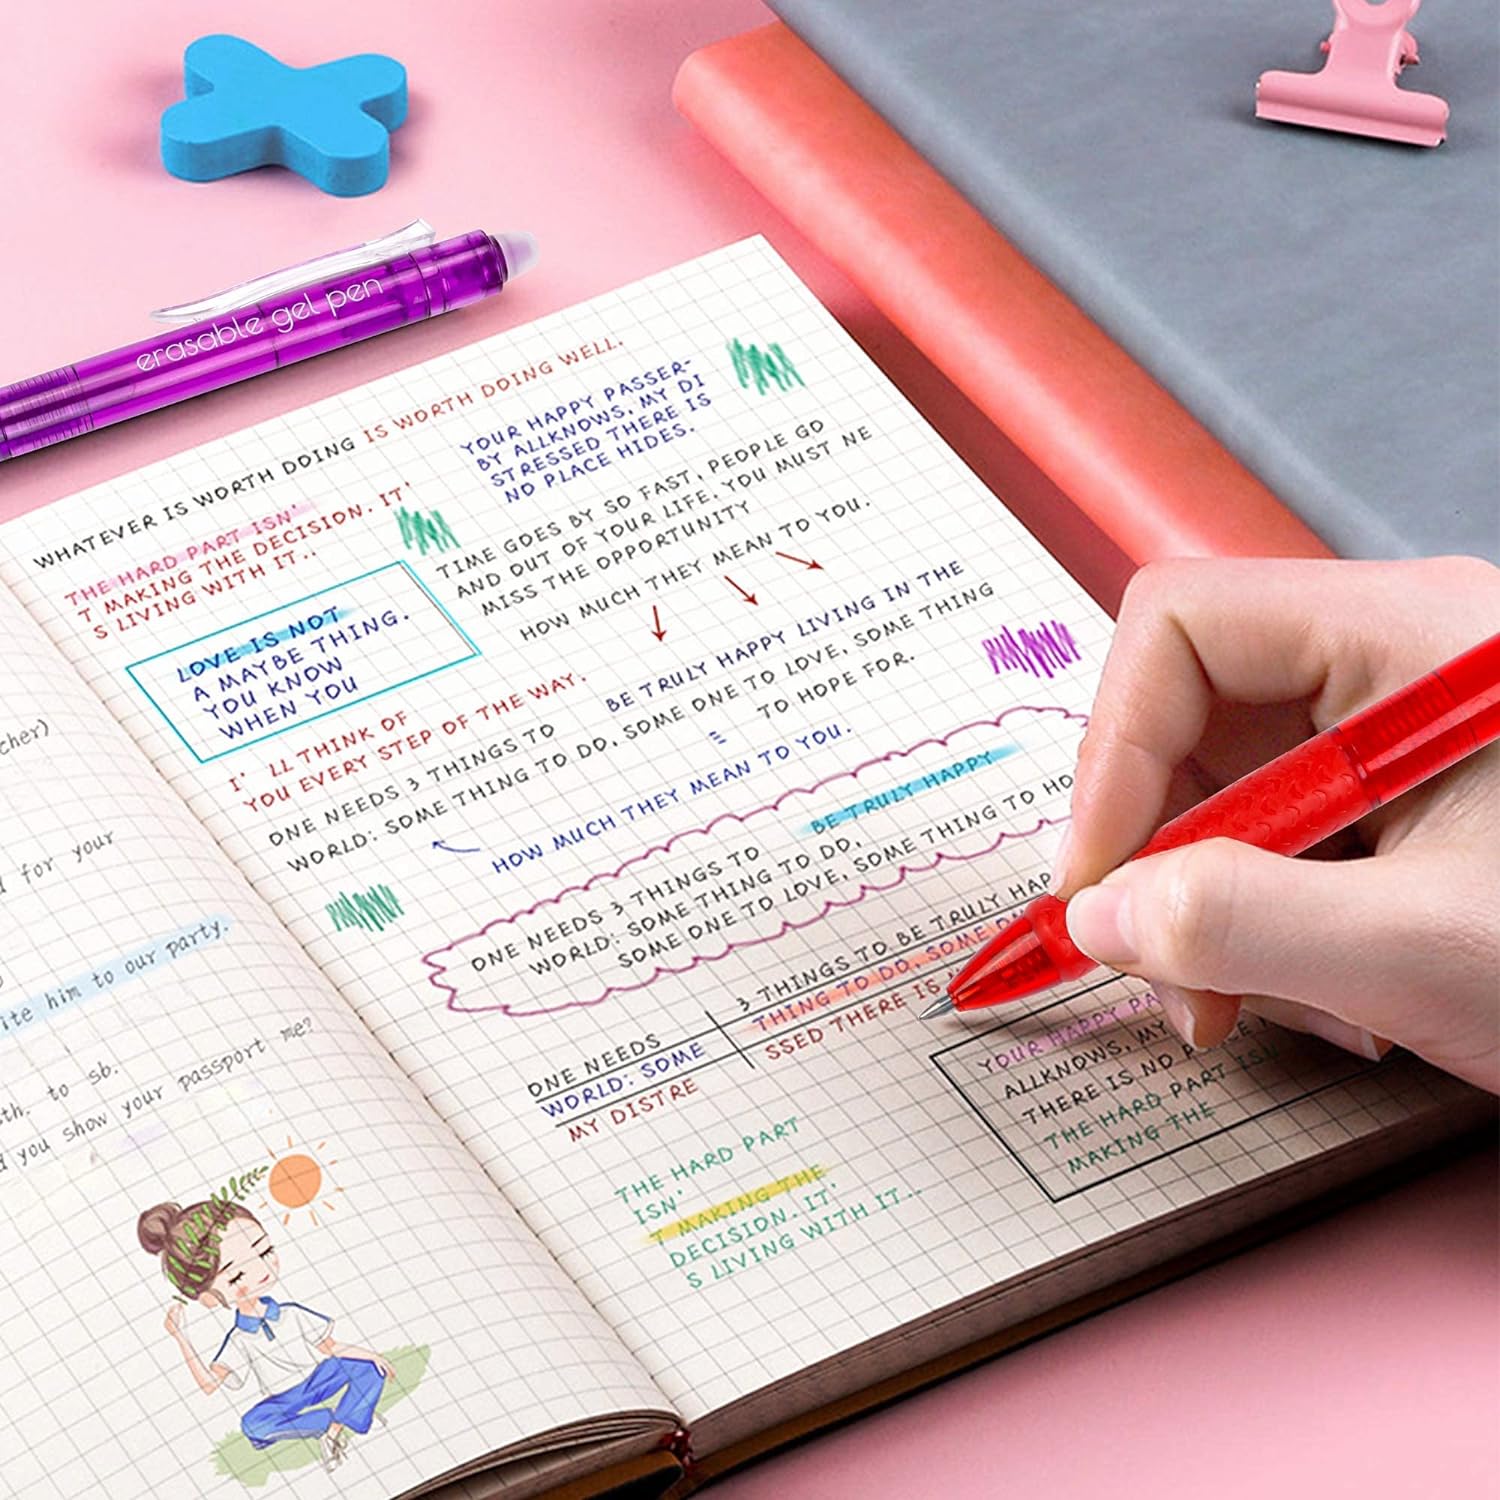 erasable gel pen
WHATEVER IS WORTH DOING IS WORTH DOING WELL.
THE HARD PART ISN'
T MAKING THE DECISION. IT'
S LIVING WITH IT..
YOUR HAPPY PASSER-
BY ALLKNOWS, MY DI
STRESSED THERE IS
NO PLACE HIDES.
TIME GOES BY SO FAST, PEOPLE GO
AND OUT OF YOUR LIFE. YOU MUST NE
MISS THE OPPORTUNITY
HOW MUCH THEY MEAN TO YOU.
LOVE IS NOT
A MAYBE THING.
YOU KNOW
WHEN YOU
I' LL THINK OF
YOU EVERY STEP OF THE WAY.
BE TRULY HAPPY LIVING IN THE
ONE NEEDS 3 THINGS TO
WORLD: SOME THING TO DO, SOME ONE TO LOVE, SOME THING
TO HOPE FOR.
HOW MUCH THEY MEAN TO YOU.
BE TRULY HAPPY
ONE NEEDS 3 THINGS TO
WORLD: SOME THING TO DO,
SOME ONE TO LOVE, SOME THING TO HO
3 THINGS TO BE TRULY HAP
ONE NEEDS
THING TO DO, SOME ON
WORLD: SOME
SSED THERE IS
MY DISTRE
YOUR HAPPY PA
ALLKNOWS, MY
THERE IS NO
THE HARD PART ISN
MAKING THE
THE HARD PART
ISN'
T MAKING THE
DECISION. IT'
S LIVING WITH IT..
cher)
for your
ite him to our party.
sth. to sb.
d you show your passport me?